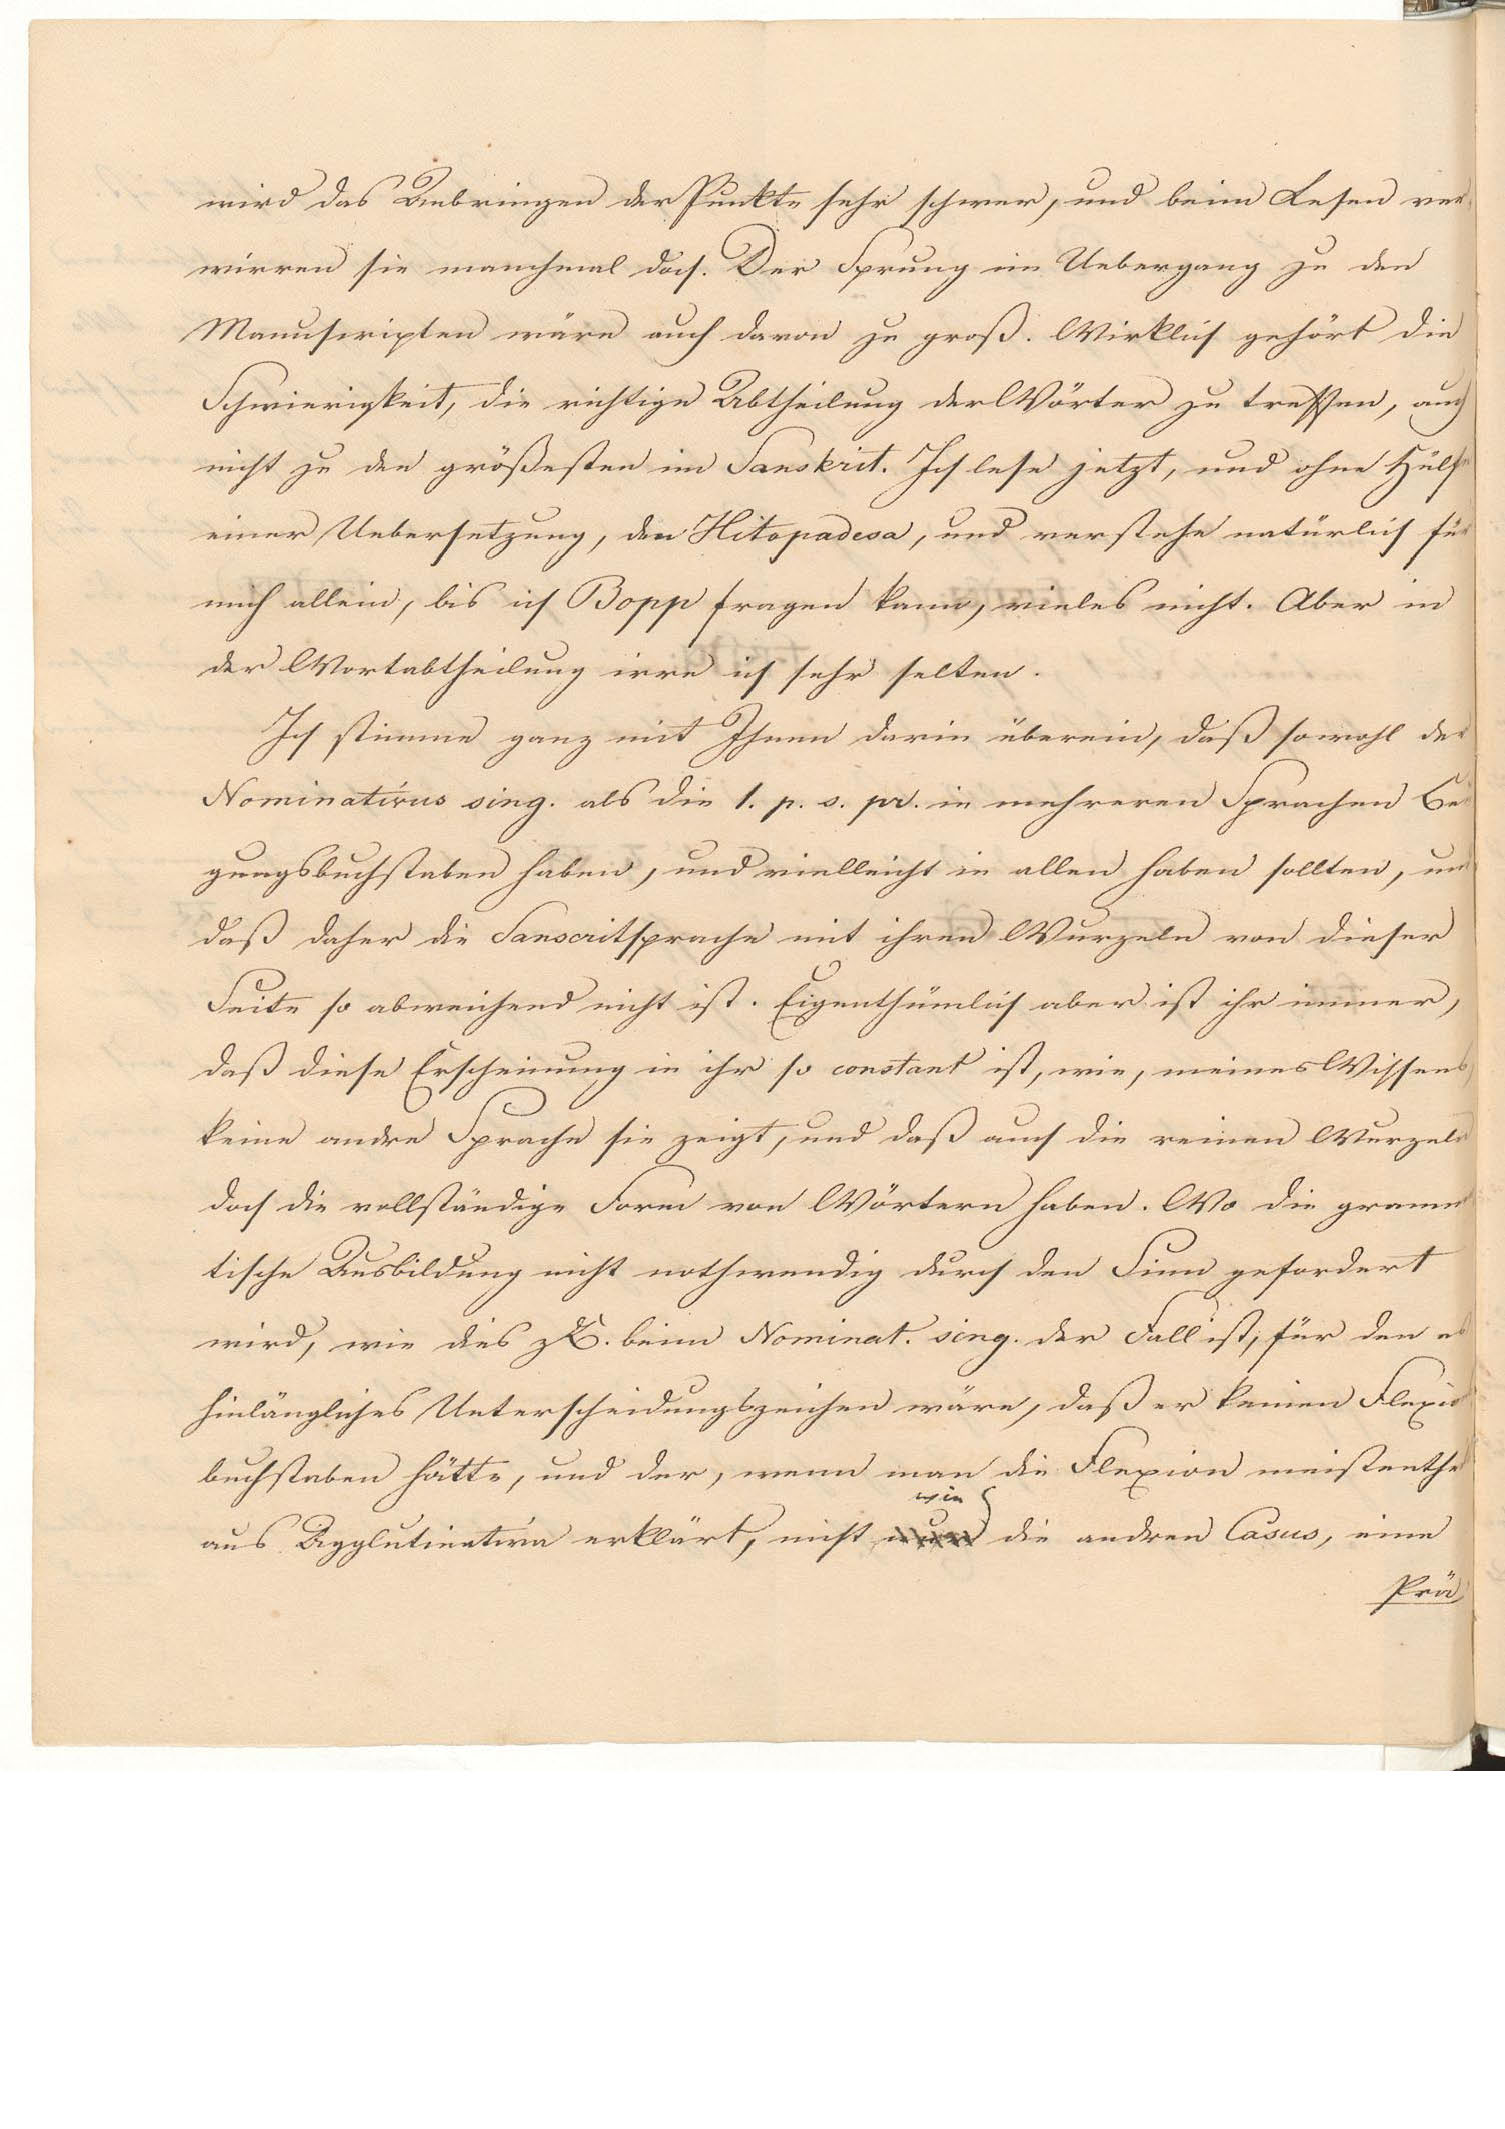 wird das Anbringen der Punkte sehr schwer, und beim Lesen ver
wirren sie manchmal doch. Der Sprung im Uebergang zu den
Manuscripten wäre auch davon zu groß. Wirklich gehört die
Schwierigkeit, die richtige Abtheilung der Wörter zu treffen, auch
nicht zu den größesten im Sanskrit. Ich lese jetzt, und ohne Hülfe
einer Uebersetzung, den Hitopadesa, und verstehe natürlich für
mich allein, bis ich Bopp fragen kann, vieles nicht. Aber in
der Wortabtheilung irre ich sehr selten.
Ich stimme ganz mit Ihnen darin überein, daß sowohl der
Nominativus sing. als die 1. p. s. pr. in mehreren Sprachen Beu
gungsbuchstaben haben, und vielleicht in allen haben sollten, und
daß daher die Sanscritsprache mit ihren Wurzeln von dieser
Seite so abweichend nicht ist. Eigenthümlich aber ist ihr immer,
daß diese Erscheinung in ihr so constant ist, wie, meines Wissens
keine andre Sprache sie zeigt, und daß auch die reinen Wurzeln
doch die vollständige Form von Wörtern haben. Wo die gramma
tische Ausbildung nicht nothwendig durch den Sinn gefordert
wird, wie dies z. B. beim Nominat. sing. der Fall ist, für den es
hinlängliches Unterscheidungszeichen wäre, daß er keinen Flexions
buchstaben hätte, und der, wenn man die Flexion meistenthe
aus Agglutinativa erklärt, nicht wie die andren Casus, eine
Prä